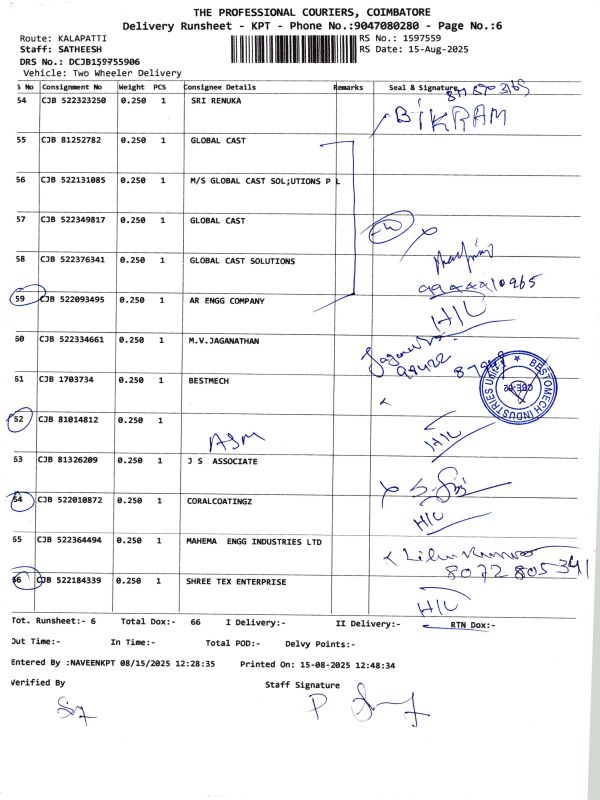 THE PROFESSIONAL COURIERS, COIMBATORE
Delivery Runsheet - KPT - Phone No.:9047080280 - Page No.:6
Route: KALAPATTI RS No.: 1597559
Staff: SATHEESH RS Date: 15-Aug-2025
DRS No.: DCJB159755906
Vehicle: Two Wheeler Delivery
S No Consignment No Weight PCS Consignee Details Remarks Seal & Signature
54 CJB 522323250 0.250 1 SRI RENUKA
BIKRAM
55 CJB 81252782 0.250 1 GLOBAL CAST
56 CJB 522131085 0.250 1 M/S GLOBAL CAST SOL;UTIONS P L
57 CJB 522349817 0.250 1 GLOBAL CAST
58 CJB 522376341 0.250 1 GLOBAL CAST SOLUTIONS
59 CJB 522093495 0.250 1 AR ENGG COMPANY
H/C
60 CJB 522334661 0.250 1 M.V.JAGANATHAN
99422
61 CJB 1703734 0.250 1 BESTMECH
BESTOMECH INDUSTRIES Unit
62 CJB 81014812 0.250 1
ASM H/C
63 CJB 81326209 0.250 1 J S ASSOCIATE
64 CJB 522010872 0.250 1 CORALCOATINGZ
H/C
65 CJB 522364494 0.250 1 MAHEMA ENGG INDUSTRIES LTD
8072805341
66 CJB 522184339 0.250 1 SHREE TEX ENTERPRISE
H/C
Tot. Runsheet:- 6 Total Dox:- 66 I Delivery:- II Delivery:- RTN Dox:-
Out Time:- In Time:- Total POD:- Delvy Points:-
Entered By :NAVEENKPT 08/15/2025 12:28:35 Printed On: 15-08-2025 12:48:34
Verified By Staff Signature